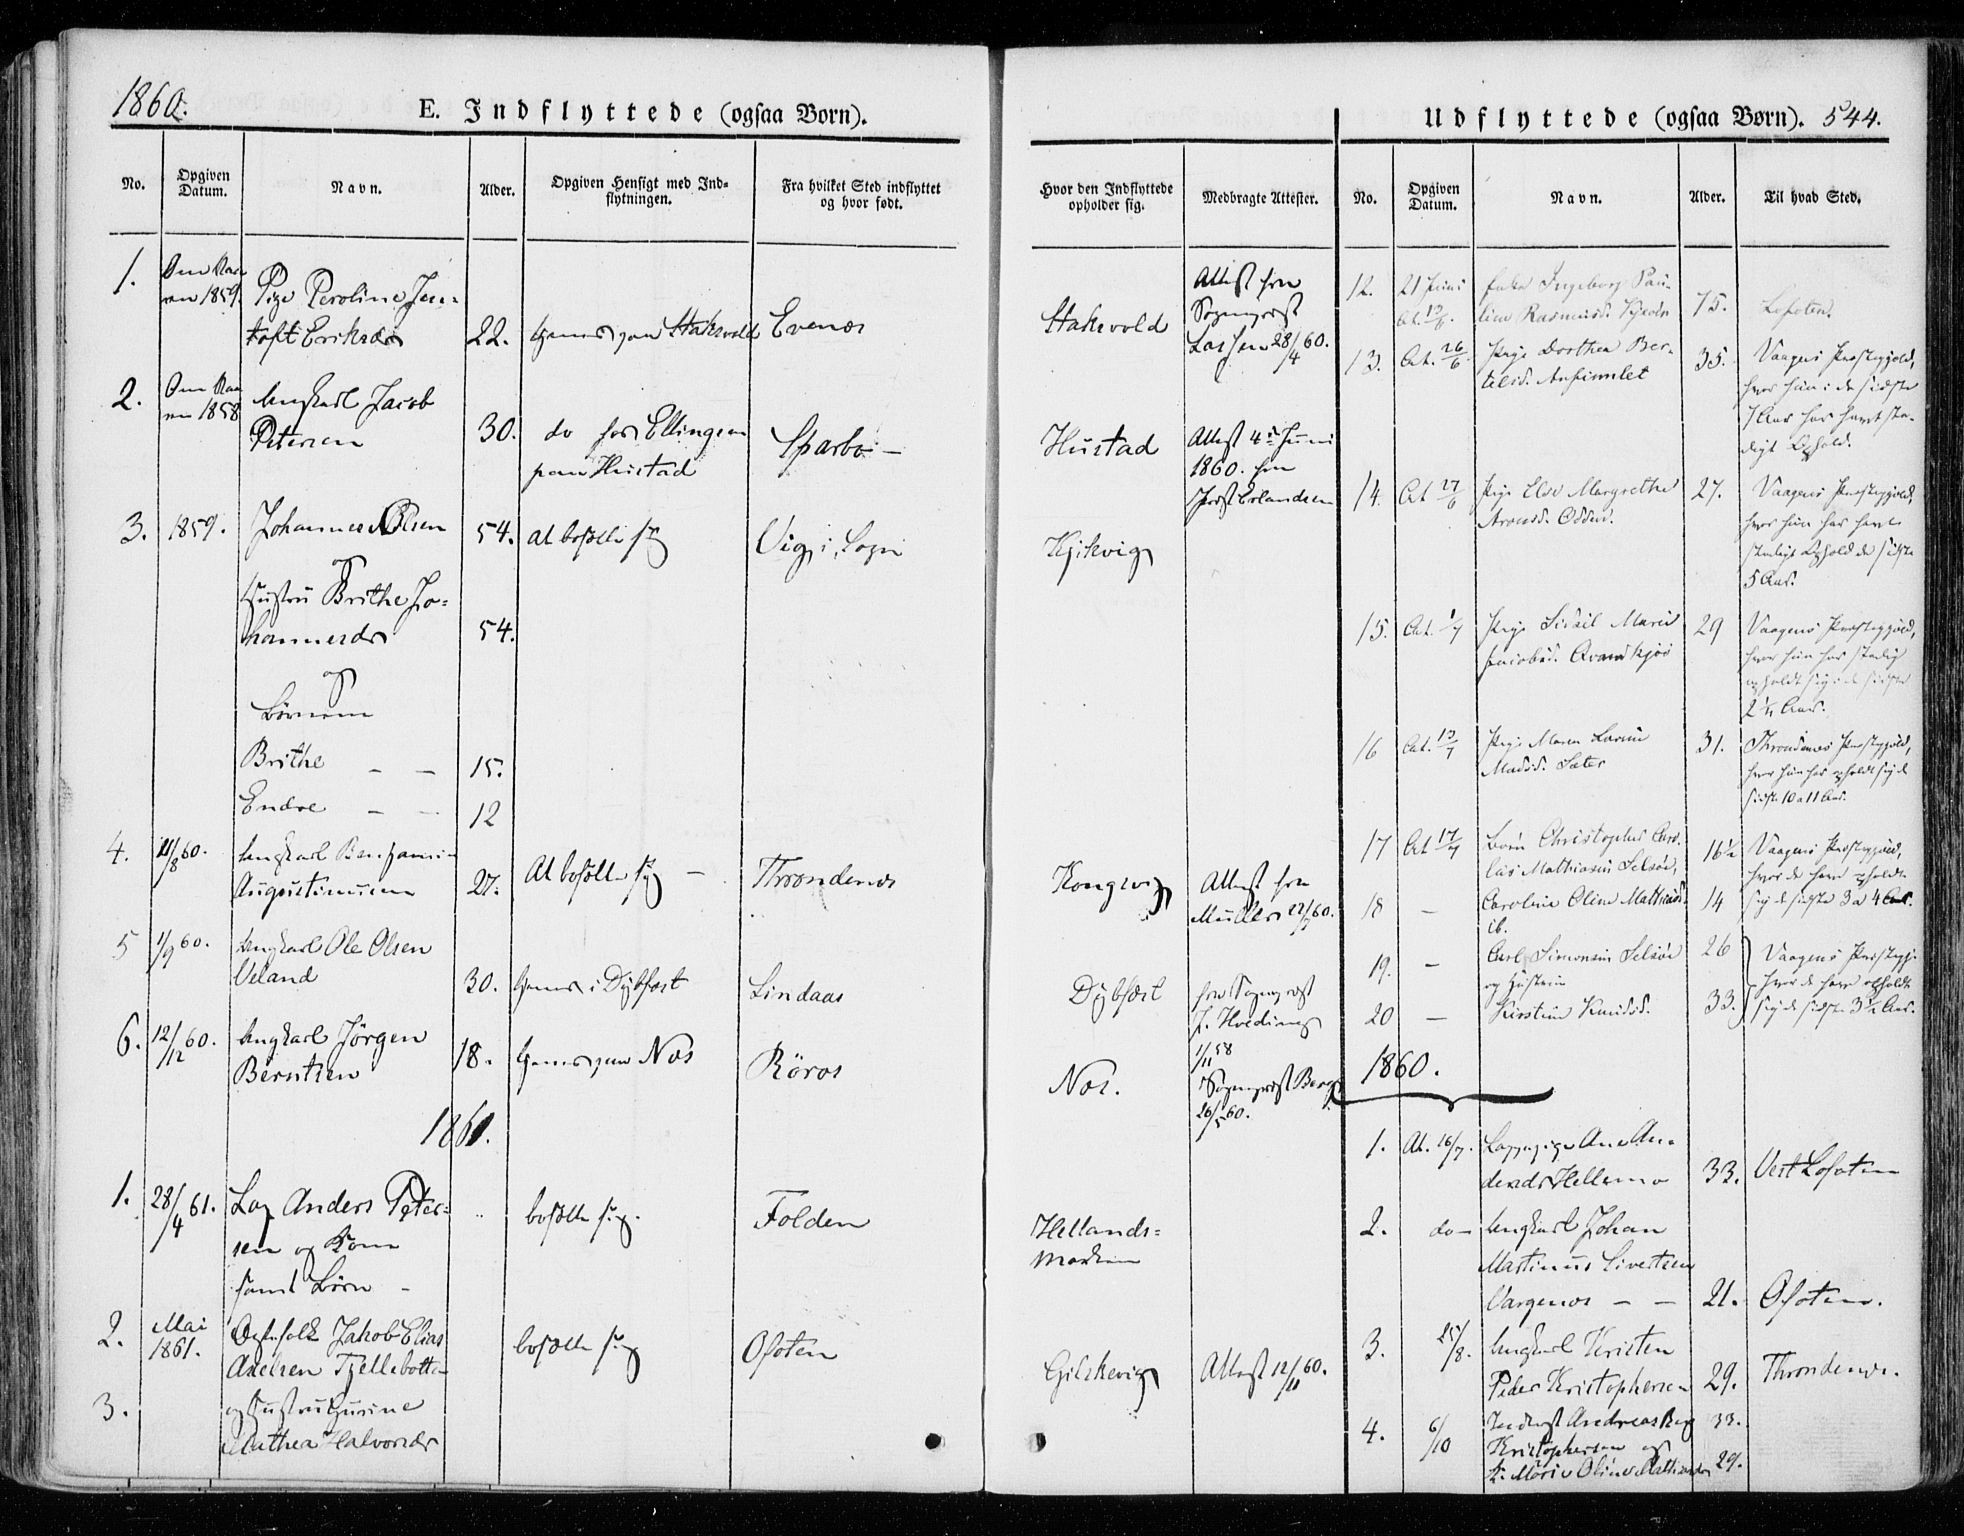 1860.
E. Indflyttede (ogsaa Børn).
No.
Opgiven Datum.
Navn.
Alder.
Opgiven Hensigt med Ind-
flytningen.
Fra hvilket Sted indflyttet
og hvor født.
1.
1859.
Pige Peroline Jen-
toft Eriksdr
22.
Hakvold
Evenæs
2.
1858
Ungkarl Jacob
Petersen
30.
do hos Ellingsen
paa Hustad
Sparbo —
3.
1859.
Johannes Olsen
54.
at bosætte sig
Vig i Sogn
og
Hustru Brithe Jo-
hannesdr
54.
og
Børnene
Brithe — —
15.
Endre — —
12
4.
21/8 60.
Ungkarl Benjamin
Augustinusen
27.
At bosætte sig —
Throndenæs
5
1/9 60.
Ungkarl Ole Olsen
Veland
30.
tjener i Dybfæst
Lindaas
6.
12/12 60.
Ungkarl Jørgen
Berntsen
18.
tjener paa Næs
Røros
1861.
1.
28/4 61.
Lap Anders Peter-
sen og Kone
samt Børn —
bosætte sig.
Folden
2.
Mai
1861.
Ægtefolk Jakob Elias
Axelsen Tjellebotten
bosætte sig
Ofoten
3.
og Hustru Gurine
Mathea Halvorsdr
Udflyttede (ogsaa Børn). 544.
Hvor den Indflyttede
opholder sig.
Medbragte Attester.
No.
Opgiven
Datum.
Navn.
Alder.
Til hvad Sted.
Hakvold
Attest fra
Sogneprest
28/4 60.
Hustad
Attest 4de Juni
1860. fra
Prost Erlandsen
Kongsvig
Attest fra
Müller 22/7 60.
Dybfæst
fra Sogneprest
J. Hveding
1/11 58
Næs.
Sogneprest Berg
26/5 60.
Hellands-
marken
Attest 12/11 60.
12.
21 Juni
Enke Ingeborg Pau-
line Rasmusd.
75.
Lofoten.
13.
Att. 26/6
Pige Dorthea Ber-
telsd.
35.
Vaagens Præstegjeld,
hvor hun i de sidste
7 Aar har havt sta-
digt Ophold.
14
Att 27/6
Pige Else Margrethe
27.
Vaagens Præstegjeld,
hvor hun har havt
stadigt Ophold de sidste
5 Aar.
15.
Att. 1/7
Pige Sidsil Marie
Jacobsd.
29
Vaagens Præstegjeld,
hvor hun har stadig
opholdt sig i de sidste
2½ Aar.
16
Att. 13/7
Pige Maren
Madsd. Sæter
31.
Throndenæs Præstegjeld,
hvor hun har opholdt sig de
sidste 10 a 11 Aar.
17
Att 17/7
Børn Christopher
Mathiasen Selsøe,
16½
Vaagens Præstegjeld,
hvor de have opholdt
18
—
Caroline Oline Mathiasd.
ib.
14
sig de sidste 3 a 4 Aar.
19.
—
Carl Simonsen Selsøe
og Hustru
26
Vaagens Præstegj.
hvor de have opholdt
20
—
Kirstine Knudsd.
33.
sig de sidste 3½ Aar.
1860.
1.
At. 16/7.
Lappepige Ane An-
dersdr Hellemo
33.
Vest Lofoten
2.
do —
Ungkarl Johan
Martinus Sivertsen
Vargenæs — —
21.
Ofoten.
3.
25/8.
Ungkarl Kristen
Peder Kristophersen
29.
Throndenæs.
4.
6/10
Andreas Berg
33.
Kristophersen og
H. Marie Oline Mathiasdr
29.